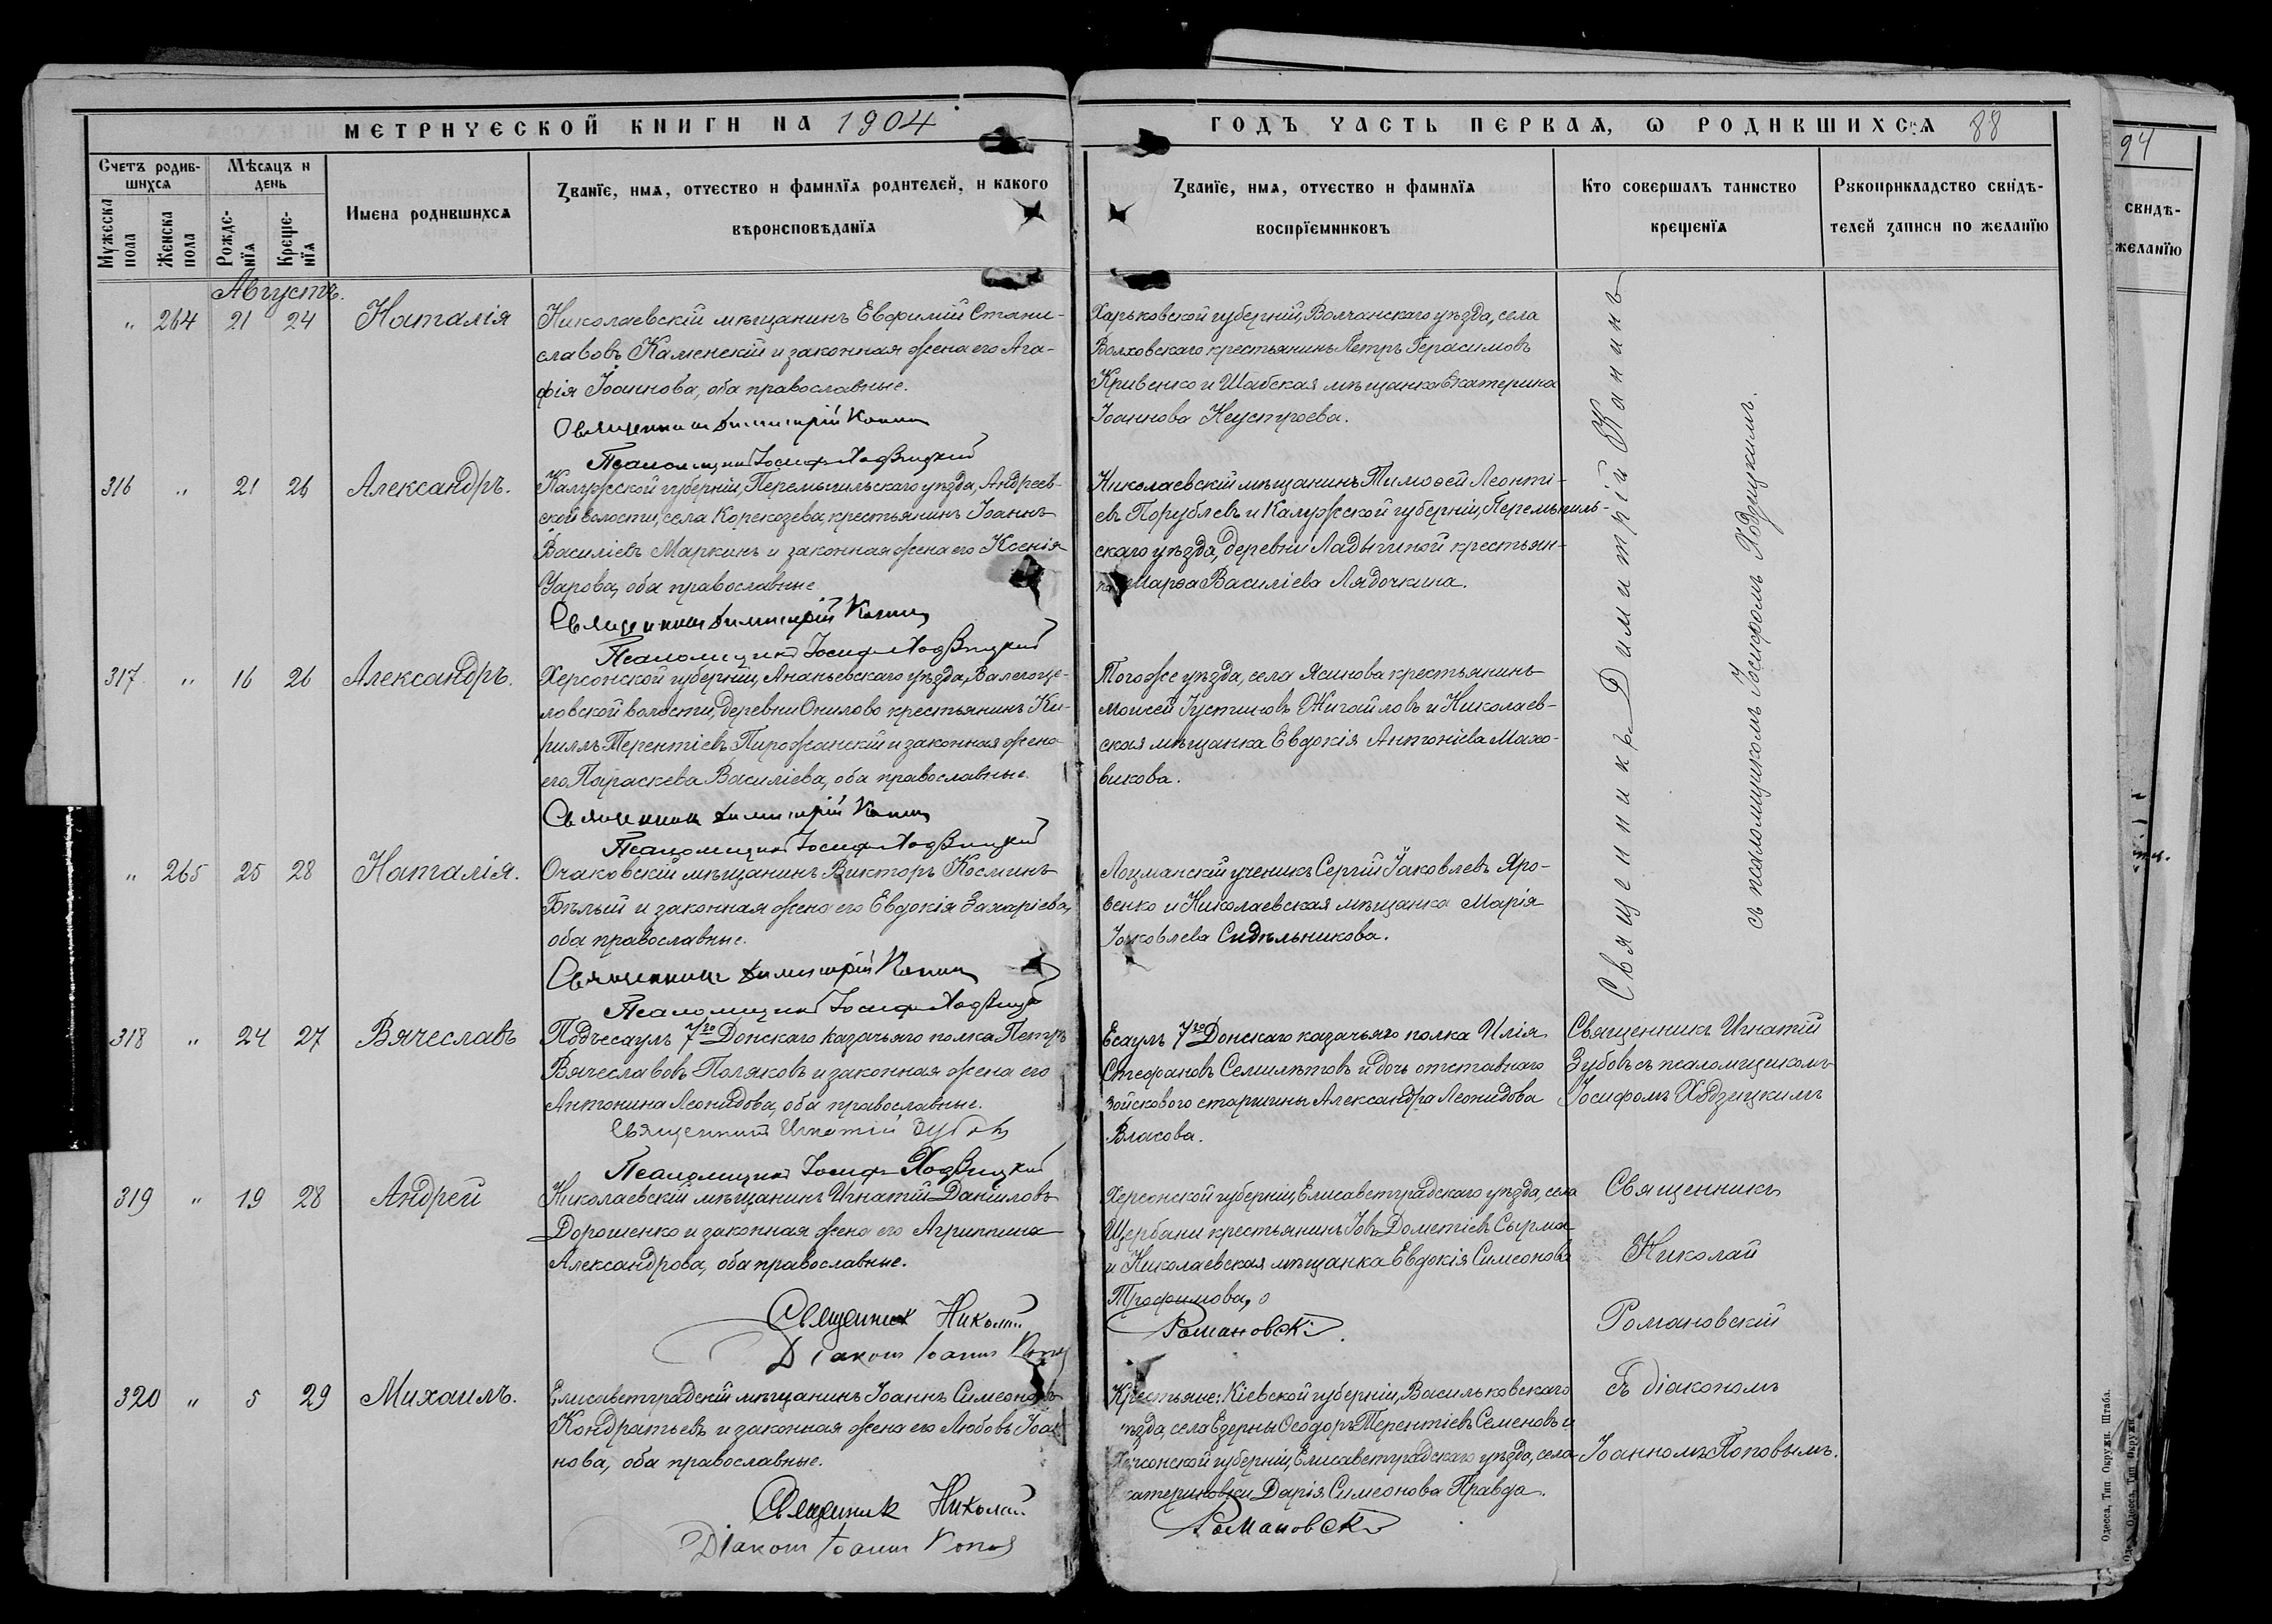 МЕТРИЧЕСКОЙ КНИГИ НА 1904
ГОДЪ ЧАСТЬ ПЕРВАЯ, Ѡ РОДИВШИХСЯ 88
Счетъ родив-
шихся
Мѣсяцъ и
день
Мужеска
пола
Женска
пола
Рожде-
нїя
Креще-
нїя
Имена родившихся
Званїе, имя, отчество и фамилїя родителей, и какого
вѣроисповѣданїя
Званїе, имя, отчество и фамилїя
воспрїемниковъ
Кто совершалъ таинство
крещенїя
Рукоприкладство свидѣ-
телей записи по желанїю
94
свидѣ-
желанїю
Августъ.
" 264 21 24 Наталія
Николаевскій мѣщанинъ Евфимій Стани-
славовъ Каменскій и законная жена его Ага-
фія Іоаннова, оба православные.
Священникъ Димитрій Канинъ
Псаломщикъ Іосифъ Ходзицкій
Харьковской губерніи, Волчанскаго уѣзда, села
Волховскаго крестьянинъ Петръ Герасимовъ
Кривенко и Шабская мѣщанка Екатерина
Іоаннова Неустроева.
Священникъ Димитрій Канинъ
съ псаломщикомъ Іосифомъ Ходзицкимъ.
316 " 21 26 Александръ.
Калужской губерніи, Перемышльскаго уѣзда, Андреев-
ской волости, села Корекозева, крестьянинъ Іоаннъ
Василіевъ Маркинъ и законная жена его Ксенія
Уарова, оба православные
Священникъ Димитрій Канинъ
Псаломщикъ Іосифъ Ходзицкій
Николаевскій мѣщанинъ Тимоѳей Леонті-
евъ Порублевъ и Калужской губерніи, Перемышль-
скаго уѣзда, деревни Ладыгиной крестьян-
ка Марѳа Василіева Лядочкина.
317 " 16 26 Александръ.
Херсонской губерніи, Ананьевскаго уѣзда, Валегоцу-
ловской волости, деревни Онилово крестьянинъ Ки-
риллъ Терентіевъ Пирожанскій и законная жена
его Параскева Василіева, оба православные.
Священникъ Димитрій Канинъ
Псаломщикъ Іосифъ Ходзицкій
Того же уѣзда, села Ясинова крестьянинъ
Моисей Іустиновъ Жигайловъ и Николаев-
ская мѣщанка Евдокія Антоніева Махо-
викова.
" 265 25 28 Наталія.
Очаковскій мѣщанинъ Викторъ Косминъ
Бѣлый и законная жена его Евдокія Захаріева,
оба православные.
Священникъ Димитрій Канинъ
Псаломщикъ Іосифъ Ходзицкій
Лоцманскій ученикъ Сергій Іаковлевъ Яро-
венко и Николаевская мѣщанка Марія
Іаковлева Сидѣльникова.
318 " 24 27 Вячеславъ
Подъесаулъ 7го Донскаго казачьяго полка Петръ
Вячеславовъ Поляковъ и законная жена его
Антонина Леонидова, оба православные.
Священникъ Игнатій Зубовъ
Псаломщикъ Іосифъ Ходзицкій
Есаулъ 7го Донскаго казачьяго полка Илія
Стефановъ Семилѣтовъ и дочь отставнаго
войскового старшины Александра Леонидова
Власова.
Священникъ Игнатій
Зубовъ съ псаломщикомъ
Іосифомъ Ходзицкимъ
319 " 19 28 Андрей
Николаевскій мѣщанинъ Игнатій Даніиловъ
Дорошенко и законная жена его Агриппина
Александрова, оба православные.
Священникъ Николай
Діаконъ Іоаннъ Поповъ
Херсонской губерніи, Елисаветградскаго уѣзда, села
Щербани крестьянинъ Іовъ Дометіевъ Сырма
и Николаевская мѣщанка Евдокія Симеонова
Трофимова,
Романовскій
Священникъ
Николай
Романовскій
320 " 5 29 Михаилъ.
Елисаветградскій мѣщанинъ Іоаннъ Симеоновъ
Кондратьевъ и законная жена его Любовь Іоан
нова, оба православные.
Священникъ Николай
Діаконъ Іоаннъ Поповъ
Крестьяне: Кіевской губерніи, Васильковскаго
уѣзда, села Езерны Ѳеодоръ Терентіевъ Семеновъ и
Херсонской губерніи, Елисаветградскаго уѣзда, села
Екатериновки Дарія Симеонова Правда.
Романовскій
Съ діакономъ
Іоанномъ Поповымъ.
Одесса, Тип. Окружн. Штаба.